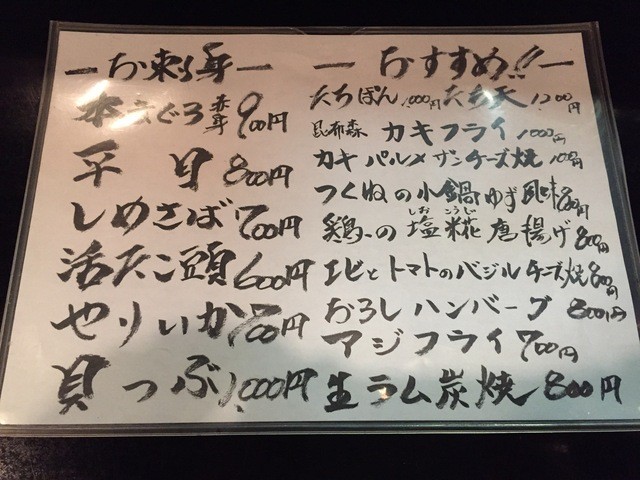 ーお刺身ー
本まぐろ 赤身 900円
平目 800円
しめさば 700円
活たこ頭 600円
やりいか 700円
貝つぶ 1,000円
ーおすすめ!!ー
たちぽん 1,000円 たち天 1,200円
昆布森 カキフライ 1000円
カキパルメザンチーズ焼 1000円
つくねの小鍋ゆず風味 800円
鶏の塩糀唐揚げ 800円
しお こうじ
エビとトマトのバジルチーズ焼 800円
おろしハンバーグ 800円
アジフライ 700円
生ラム炭焼 800円